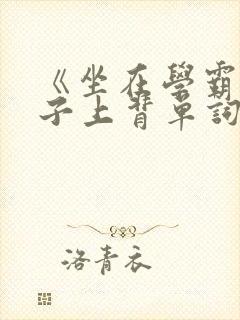 《坐在學霸
子上背單詞
洛青衣